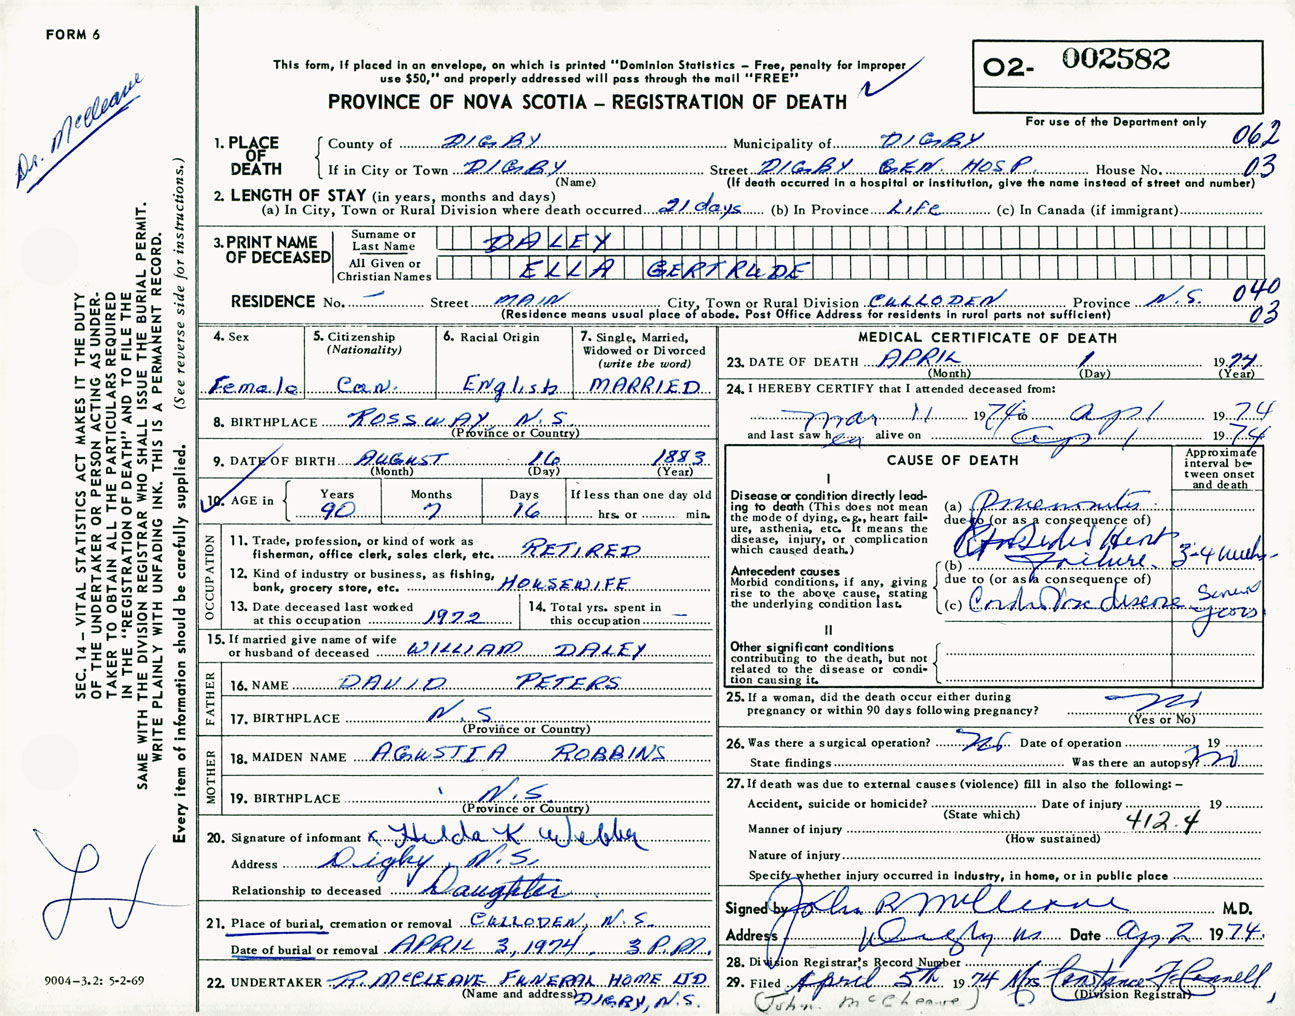 FORM 6
Dr. McCleave
This form, if placed in an envelope, on which is printed "Dominion Statistics – Free, penalty for improper
use $50," and properly addressed will pass through the mail "FREE"
PROVINCE OF NOVA SCOTIA – REGISTRATION OF DEATH
O2- 002582
For use of the Department only
062
03
1. PLACE OF DEATH
County of DIGBY Municipality of DIGBY
If in City or Town DIGBY Street DIGBY GEN. HOSP. House No.
(Name) (If death occurred in a hospital or institution, give the name instead of street and number)
2. LENGTH OF STAY (in years, months and days)
(a) In City, Town or Rural Division where death occurred 21 days (b) In Province LIFE (c) In Canada (if immigrant)
3. PRINT NAME OF DECEASED
Surname or Last Name DALEY
All Given or Christian Names ELLA GERTRUDE
RESIDENCE No. – Street MAIN City, Town or Rural Division CULLODEN Province N.S. 040
(Residence means usual place of abode. Post Office Address for residents in rural parts not sufficient) 03
4. Sex
Female
5. Citizenship
(Nationality)
Can.
6. Racial Origin
English
7. Single, Married,
Widowed or Divorced
(write the word)
MARRIED
8. BIRTHPLACE ROSSWAY, N.S.
(Province or Country)
9. DATE OF BIRTH AUGUST 16 1883
(Month) (Day) (Year)
10. AGE in
Years Months Days If less than one day old
90 7 16 hrs. or min.
OCCUPATION
11. Trade, profession, or kind of work as
fisherman, office clerk, sales clerk, etc. RETIRED
12. Kind of industry or business, as fishing,
bank, grocery store, etc. HOUSEWIFE
13. Date deceased last worked
at this occupation 1972
14. Total yrs. spent in
this occupation –
15. If married give name of wife
or husband of deceased WILLIAM DALEY
FATHER
16. NAME DAVID PETERS
17. BIRTHPLACE N.S
(Province or Country)
MOTHER
18. MAIDEN NAME AGUSTIA ROBBINS
19. BIRTHPLACE N.S.
(Province or Country)
20. Signature of informant x Hilda K Webber
Address Digby, N.S.
Relationship to deceased Daughter
21. Place of burial, cremation or removal CULLODEN, N.S.
Date of burial or removal APRIL 3, 1974. 3 P.M.
22. UNDERTAKER R. McCLEAVE FUNERAL HOME LTD
(Name and address) DIGBY, N.S.
MEDICAL CERTIFICATE OF DEATH
23. DATE OF DEATH APRIL 1 1974
(Month) (Day) (Year)
24. I HEREBY CERTIFY that I attended deceased from:
Mar 11 1974 to Ap 1 1974
and last saw her alive on Ap 1 1974
CAUSE OF DEATH
Approximate
interval be-
tween onset
and death
I
Disease or condition directly lead-
ing to death (This does not mean
the mode of dying, e.g., heart fail-
ure, asthenia, etc. It means the
disease, injury, or complication
which caused death.)
(a) Pneumonitis
due to (or as a consequence of)
Heart
(b) Failure. 3-4 weeks
Antecedent causes
Morbid conditions, if any, giving
rise to the above cause, stating
the underlying condition last.
due to (or as a consequence of)
(c) disease Several
years
II
Other significant conditions
contributing to the death, but not
related to the disease or condi-
tion causing it.
25. If a woman, did the death occur either during
pregnancy or within 90 days following pregnancy? No
(Yes or No)
26. Was there a surgical operation? No Date of operation 19
State findings Was there an autopsy? No
27. If death was due to external causes (violence) fill in also the following: –
Accident, suicide or homicide? Date of injury 19
(State which)
Manner of injury 412.4
(How sustained)
Nature of injury
Specify whether injury occurred in industry, in home, or in public place
Signed by John R McCleave M.D.
Address Digby NS Date Ap 2 1974.
28. Division Registrar's Record Number
29. Filed April 5th 1974 Mrs Constance F. Connell
(Division Registrar)
(John McCleave)
SEC. 14 – VITAL STATISTICS ACT MAKES IT THE DUTY
OF THE UNDERTAKER OR PERSON ACTING AS UNDER-
TAKER TO OBTAIN ALL THE PARTICULARS REQUIRED
IN THE "REGISTRATION OF DEATH" AND TO FILE THE
SAME WITH THE DIVISION REGISTRAR WHO SHALL ISSUE THE BURIAL PERMIT.
WRITE PLAINLY WITH UNFADING INK. THIS IS A PERMANENT RECORD.
Every item of information should be carefully supplied. (See reverse side for instructions.)
9004-3.2: 5-2-69